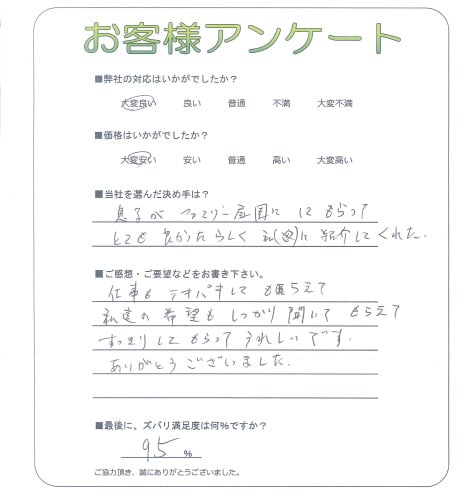 お客様アンケート
■弊社の対応はいかがでしたか?
大変良い 良い 普通 不満 大変不満
■価格はいかがでしたか?
大変安い 安い 普通 高い 大変高い
■当社を選んだ決め手は?
息子が ファミリー庭園に してもらって
とても良かったらしく 私(父)に紹介してくれた.
■ご感想・ご要望などをお書き下さい。
仕事も テキパキして もらえて
私達の希望も しっかり聞いて もらえて
すっきりしてもらって うれしいです.
ありがとうございました.
■最後に、ズバリ満足度は何%ですか?
95 %
ご協力頂き、誠にありがとうございました。